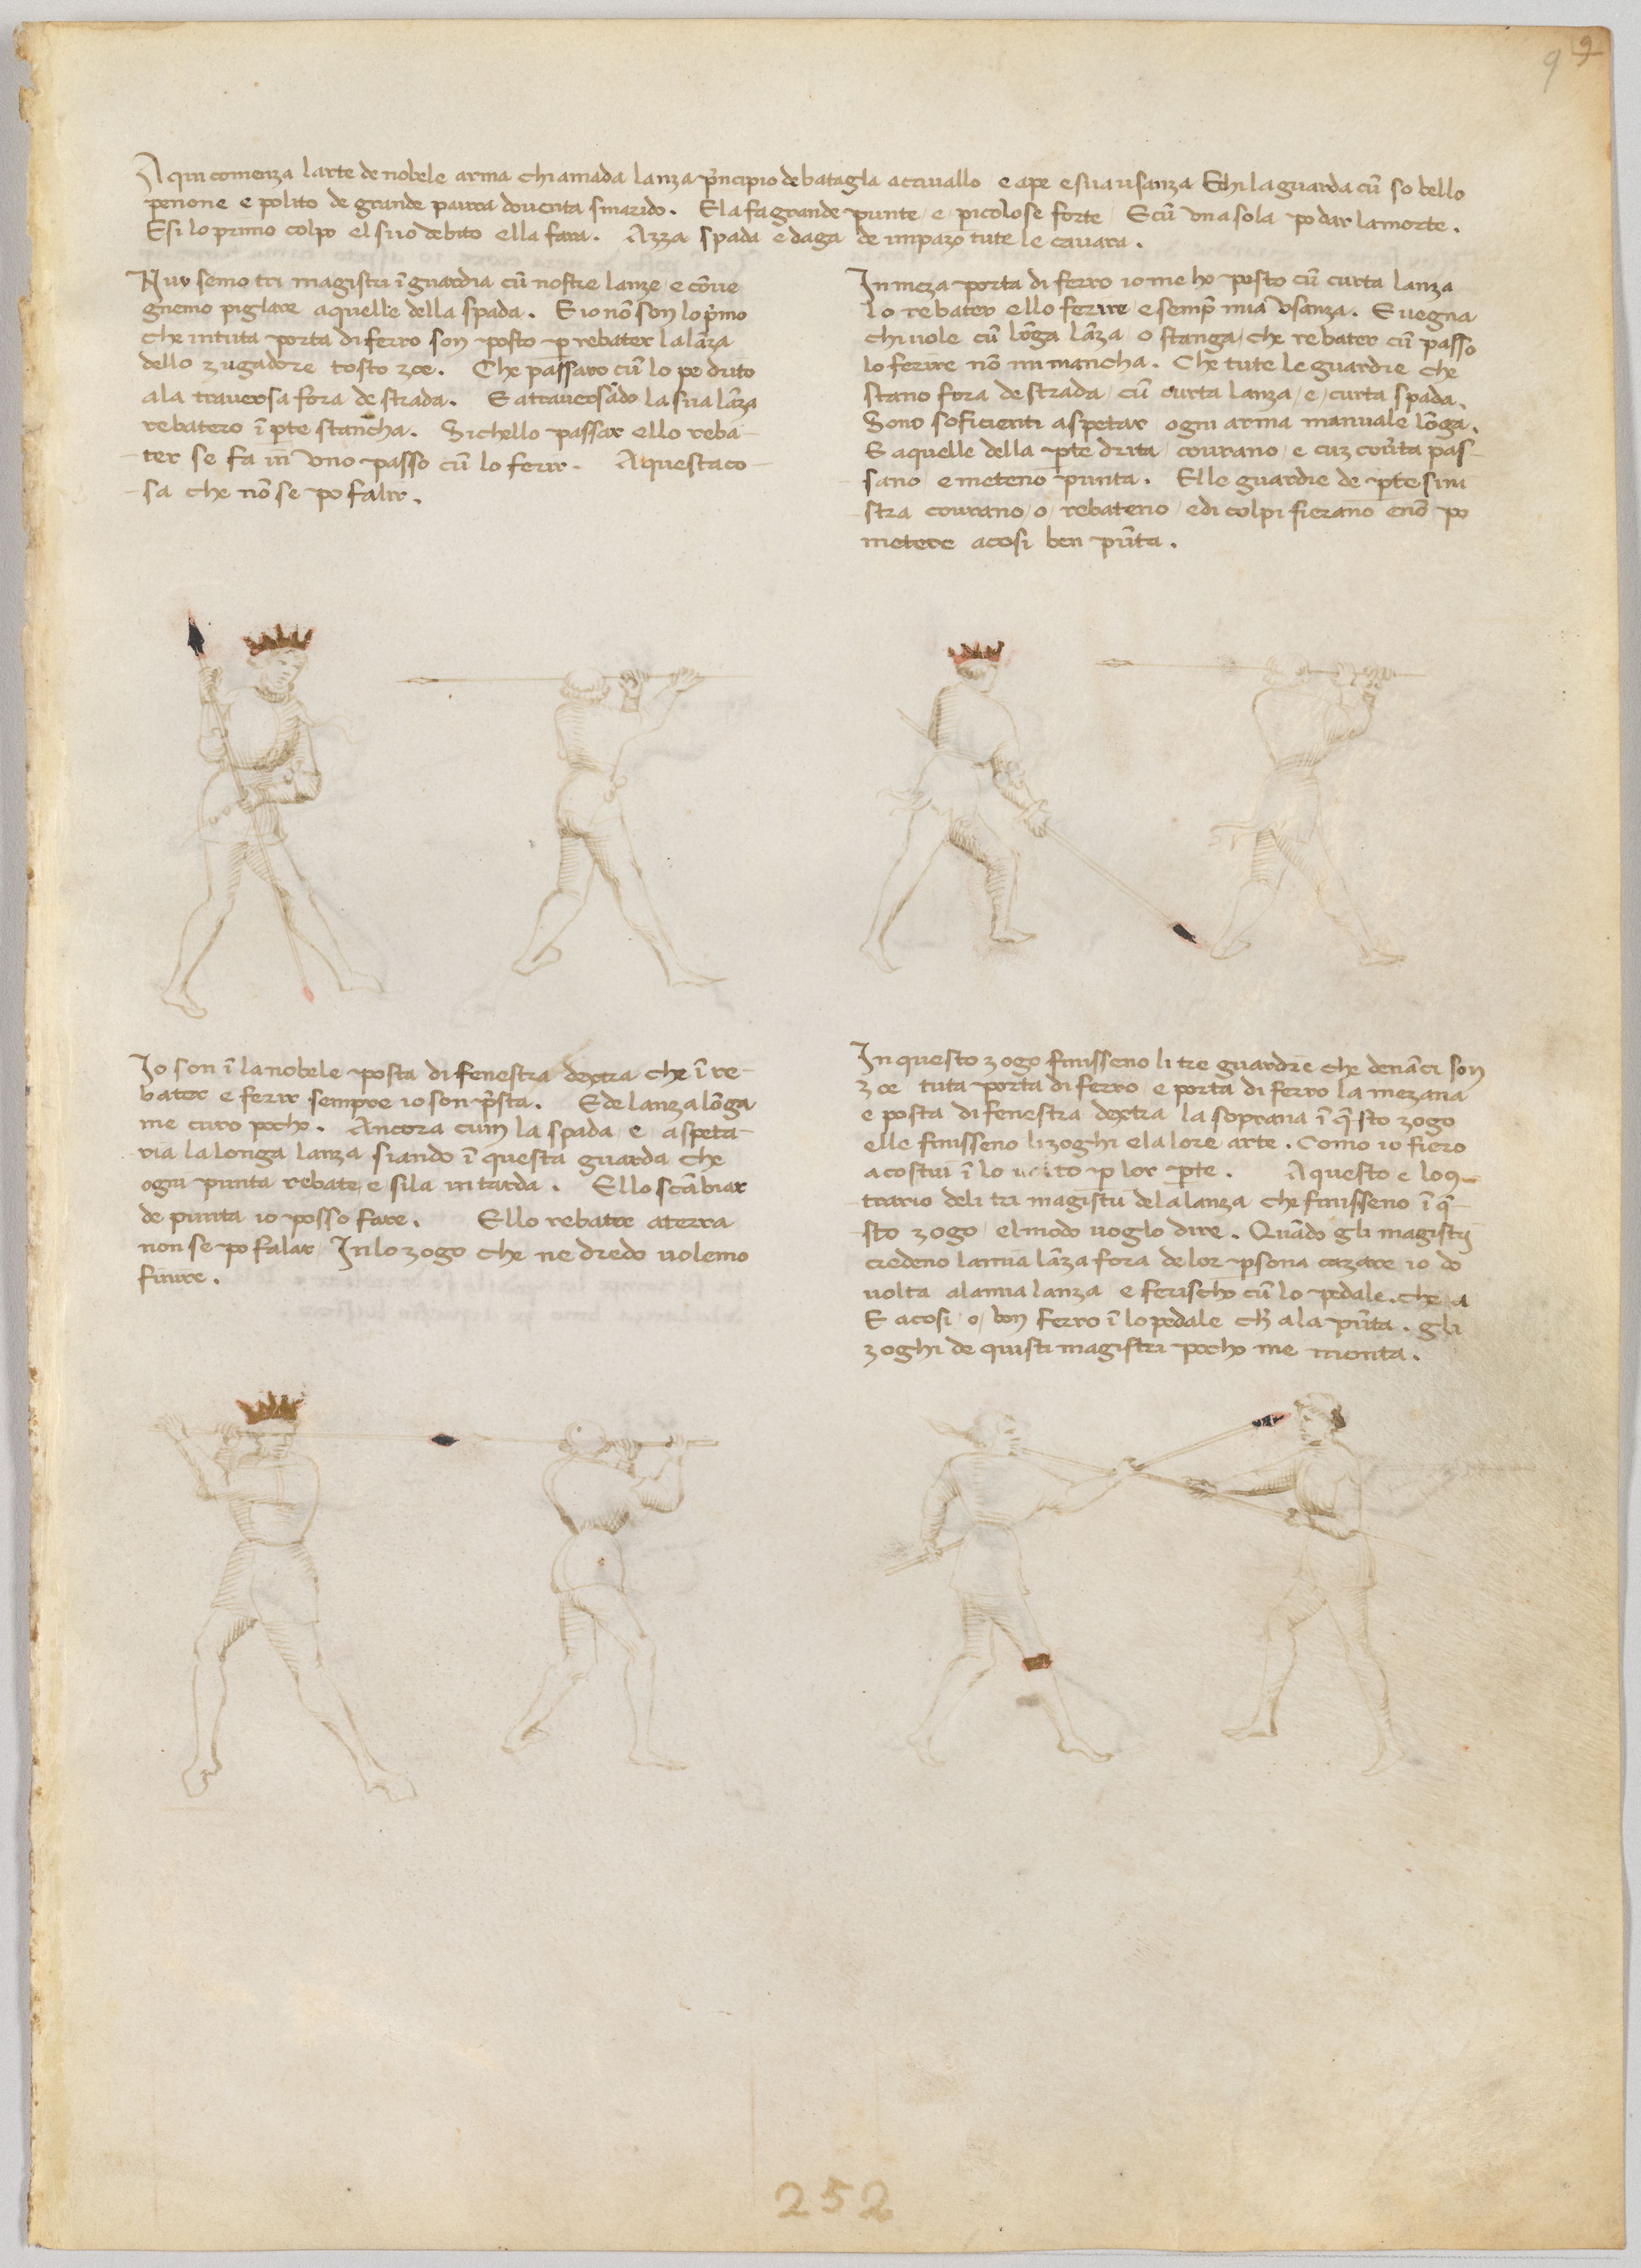 9 9
A qui comenza larte de nobele arma chiamada lanza p̃ncipio de batagla acauallo e ape e sua usanza Echi la guarda cũ so bello
penone e polito de grande paura douenta smarido. E la fa grande punte e picolose forte E cũ una sola po dar la morte.
E si lo primo colpo el suo debito ella fara. Azza spada e daga de impazo tute le cauara.
Nuy semo tri magistri ĩ guardia cũ nostre lanze e cõue
gnemo piglare aquelle della spada. E io nõ son lo p̃mo
che in tuta porta di ferro son posto p rebater la lãza
dello zugadore tosto zoe. Che passaro cũ lo pe drito
ala trauersa fora de strada. E atrauersãdo la sua lãza
rebatero ĩ pte stancha. Si chello passar ello reba-
ter se fa in uno passo cũ lo ferir. Aquesta co-
sa che nõ se po falir.
In meza porta di ferro io me ho posto cũ curta lanza
lo rebater ello ferire e semp̃ mia usanza. E uegna
chi uole cũ lõga lãza o stanga, che rebater cũ passo
lo ferire nõ mi mancha. Che tute le guardie che
stano fora de strada, cũ curta lanza, e, curta spada.
Sono soficienti aspetar ogni arma manuale lõga.
E aquelle della pte drita courano e cuz couẽta pas-
sano e meteno punta. Elle guardie de pte sini
stra courano, o, rebateno, e di colpi fierano e nõ po
metere acosi ben pũta.
Io son ĩ la nobele posta di fenestra dextra che ĩ re-
bater e ferir sempre io son p̃sta. E de lanza lõga
me curo pocho. Ancora cum la spada e aspeta-
ria la longa lanza siando ĩ questa guarda che
ogni punta rebate e si la intarda. Ello scãbiar
de punta io posso fare. Ello rebater aterra
non se po falar In lo zogo che ne dredo uolemo
finire.
In questo zogo finisseno li tre guardie che denãci son
zoe tuta porta di ferro e porta di ferro la mezana
e posta di fenestra dextra la soprana ĩ q̃sto zogo
elle finisseno li zoghi e la lore arte. Como io fiero
a costui ĩ lo uolto p lor pte. Aquesto e lo 9-
trario deli tri magistri de la lanza che finisseno ĩ q̃-
sto zogo el modo uoglo dire. Quãdo gli magistri
credeno la mia lãza fora de lor psona cazare io do
uolta ala mia lanza e ferischo cũ lo pedale. che a
E acosi o bon ferro ĩ lo pedale ch̃ ala pũta. gli
zoghi de quisti magistri pocho me monta.
252